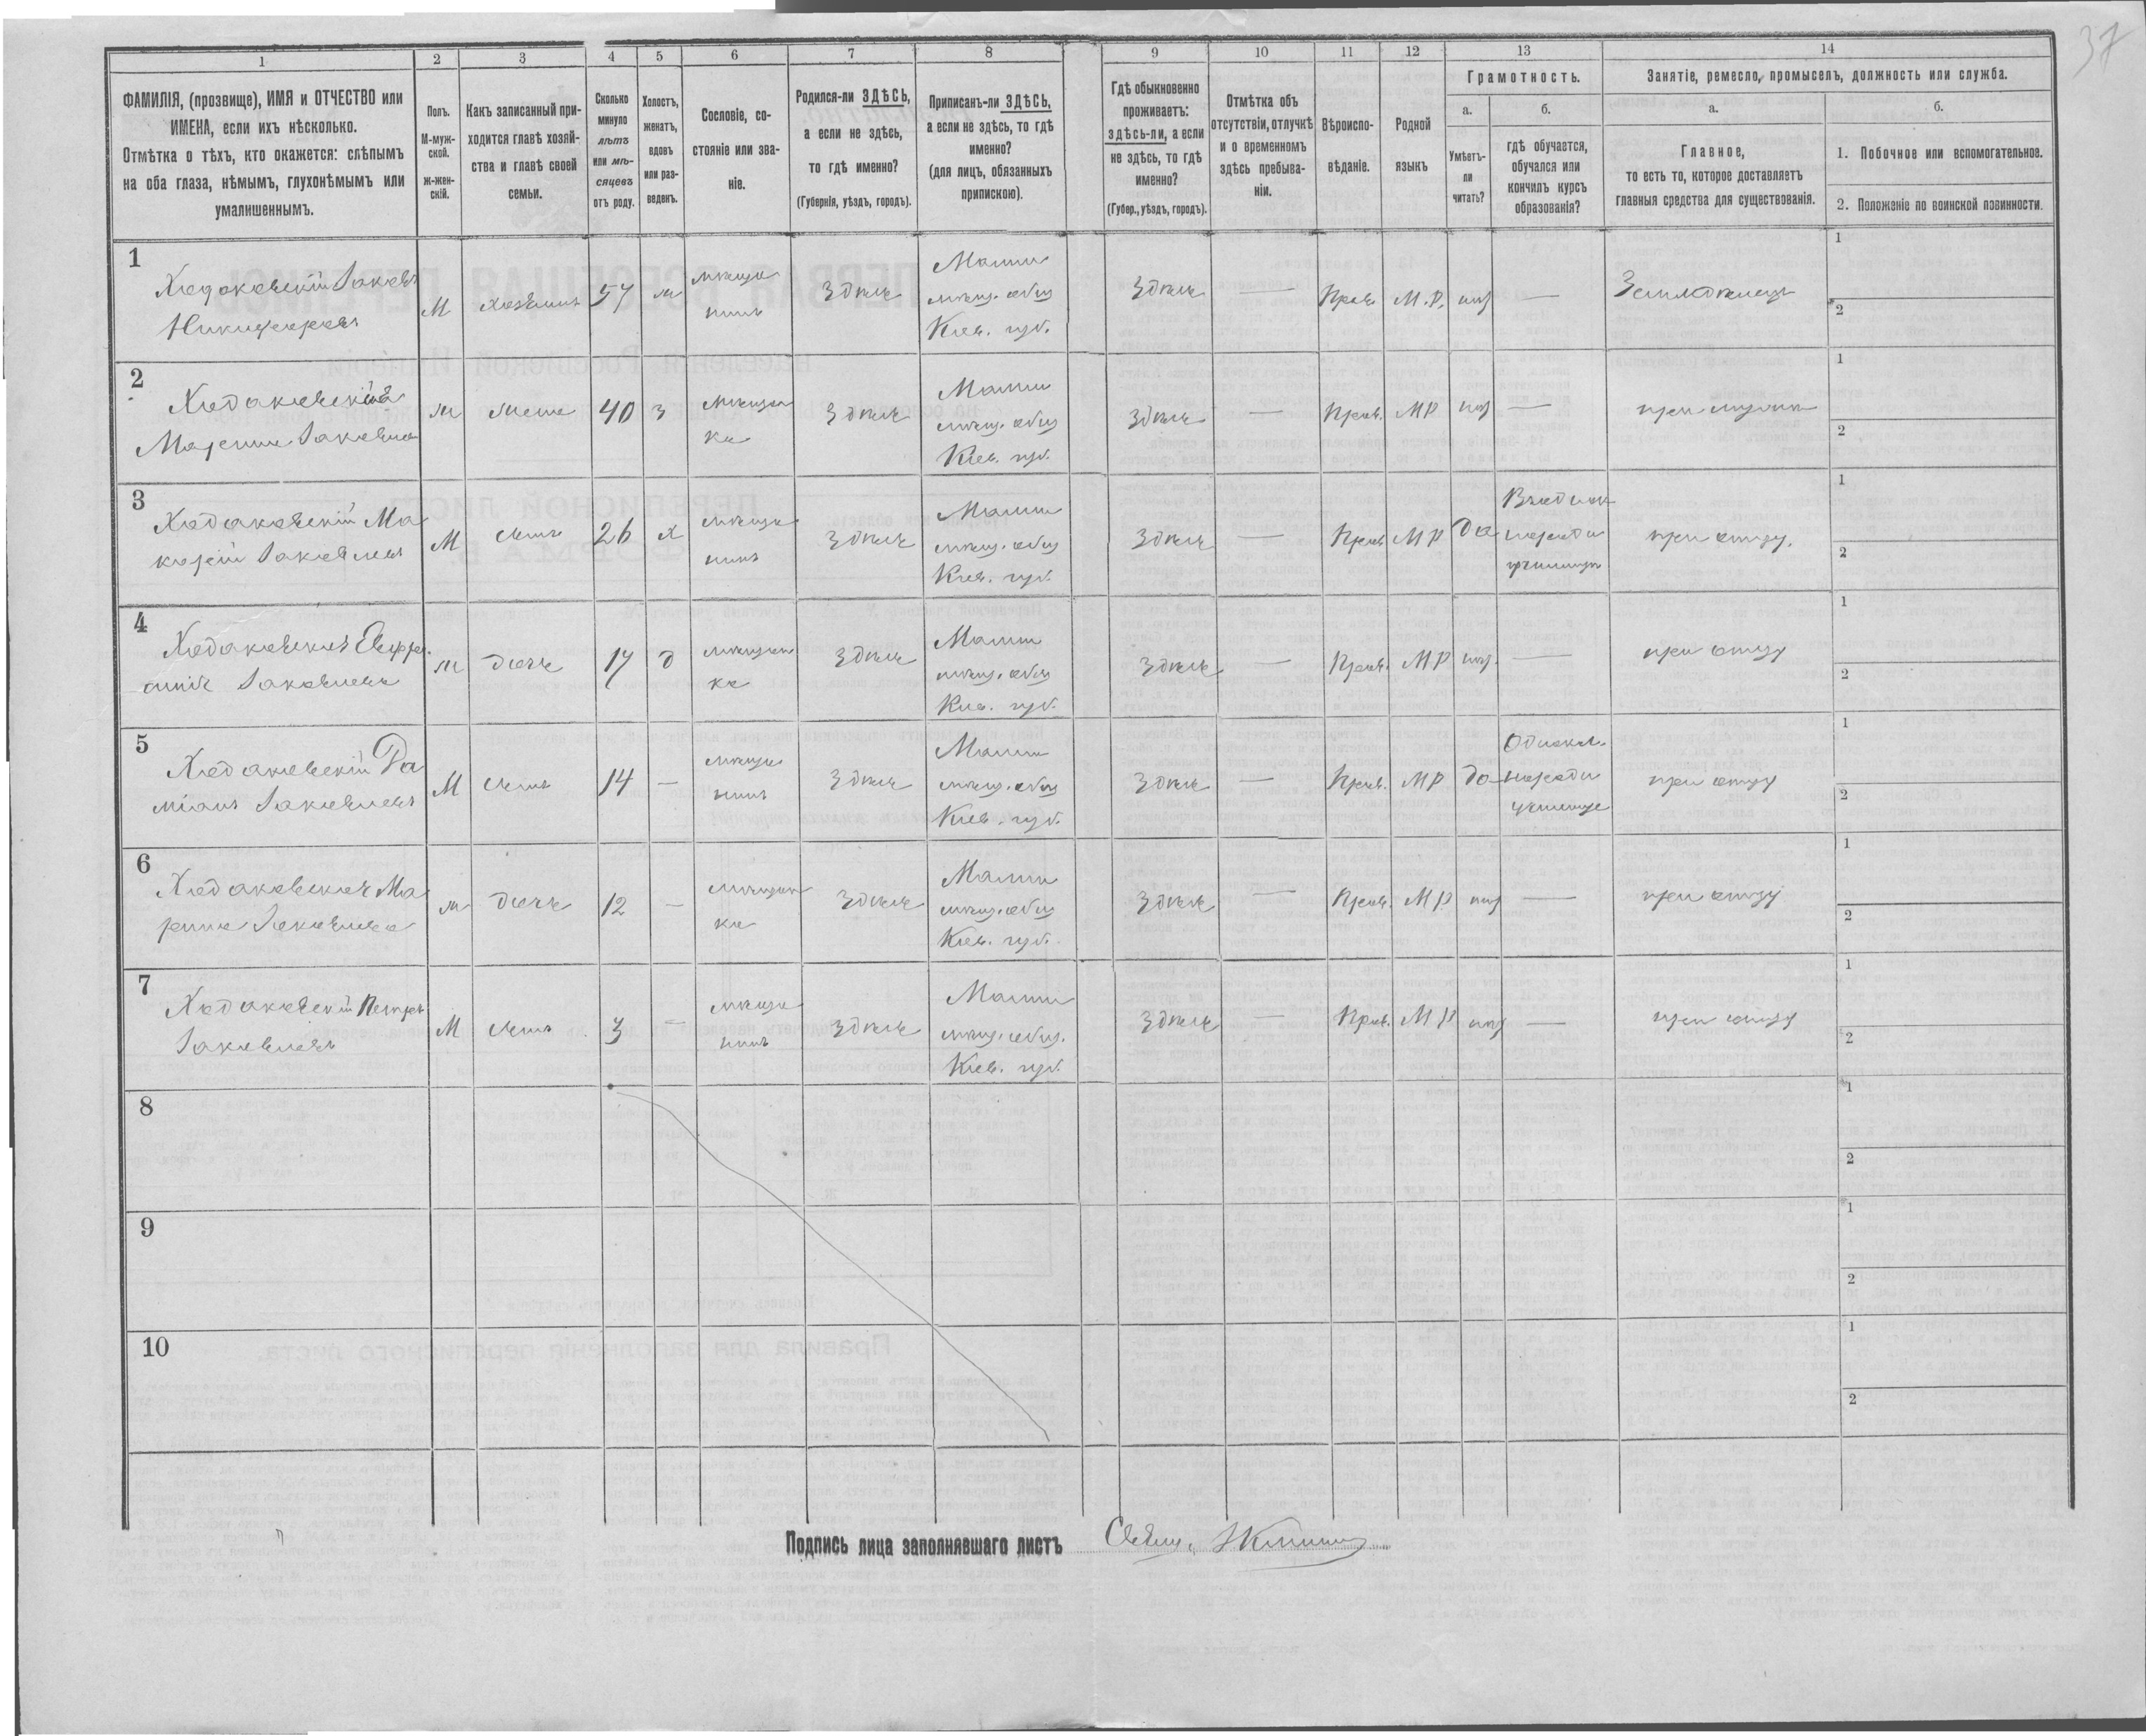 37
1 2 3 4 5 6 7 8 9 10 11 12 13 14
ФАМИЛІЯ, (прозвище), ИМЯ и ОТЧЕСТВО или
ИМЕНА, если ихъ нѣсколько.
Отмѣтка о тѣхъ, кто окажется: слѣпымъ
на оба глаза, нѣмымъ, глухонѣмымъ или
умалишеннымъ.
Полъ.
М-муж-
ской.
ж-жен-
скій.
Какъ записанный при-
ходится главѣ хозяй-
ства и главѣ своей
семьи.
Сколько
минуло
лѣтъ
или мѣ-
сяцевъ
отъ роду.
Холостъ,
женатъ,
вдовъ
или раз-
веденъ.
Сословіе, со-
стояніе или зва-
ніе.
Родился-ли ЗДѢСЬ,
а если не здѣсь,
то гдѣ именно?
(Губернія, уѣздъ, городъ).
Приписанъ-ли ЗДѢСЬ,
а если не здѣсь, то гдѣ
именно?
(для лицъ, обязанныхъ
припискою).
Гдѣ обыкновенно
проживаетъ:
здѣсь-ли, а если
не здѣсь, то гдѣ
именно?
(Губер., уѣздъ, городъ).
Отмѣтка объ
отсутствіи, отлучкѣ
и о временномъ
здѣсь пребыва-
ніи.
Вѣроиспо-
вѣданіе.
Родной
языкъ
Грамотность.
а.
Умѣетъ-
ли
читать?
б.
гдѣ обучается,
обучался или
кончилъ курсъ
образованія?
Занятіе, ремесло, промыселъ, должность или служба.
а.
Главное,
то есть то, которое доставляетъ
главныя средства для существованія.
б.
1. Побочное или вспомогательное.
2. Положеніе по воинской повинности.
1
Ходаковскій Іаковъ
Никифоровъ
М
хозяинъ
57
ж
мѣща
нинъ
Здѣсь
Малин
мѣщ. общ
Кіев. губ.
Здѣсь
—
Прав.
М.Р.
нѣт
—
Земледѣлецъ
1
2
2
Ходаковская
Іаковлева
ж
жена
40
З
мѣщан
ка
Здѣсь
Малин
мѣщ. общ
Кіев. губ.
Здѣсь
—
Прав.
МР
нѣт
—
при мужѣ
1
2
3
Ходаковскій Ма
карій Іаковлевъ
М
сынъ
26
х
мѣща
нинъ
Здѣсь
Малин
мѣщ. общ
Кіев. губ.
Здѣсь
—
Прав.
МР
да
народн
училищ
при отцу.
1
2
4
Ходаковская Евфро
Іаковлева
ж
дочь
17
д
мѣщан
ка
Здѣсь
Малин
мѣщ. общ
Кіев. губ.
Здѣсь
—
Прав.
МР
нѣт.
—
при отцу
1
2
5
Ходаковскій Да
міанъ Іаковлевъ
М
сынъ
14
—
мѣща
нинъ
Здѣсь
Малин
мѣщ. общ
Кіев. губ.
Здѣсь
—
Прав.
МР
да
Однокл.
народн
училище
при отцу
1
2
6
Ходаковская Ма
рина Іаковлева
ж
дочь
12
—
мѣщан
ка
Здѣсь
Малин
мѣщ. общ
Кіев. губ.
Здѣсь
—
Прав.
МР
нѣт
—
при отцу
1
2
7
Ходаковскій Петръ
Іаковлевъ
М
сынъ
3
—
мѣща
нинъ
Здѣсь
Малин
мѣщ. общ.
Кіев. губ.
Здѣсь
Прав.
МР
нѣт
—
при отцу
1
2
8
1
2
9
1
2
10
1
2
Подпись лица заполнявшаго листъ